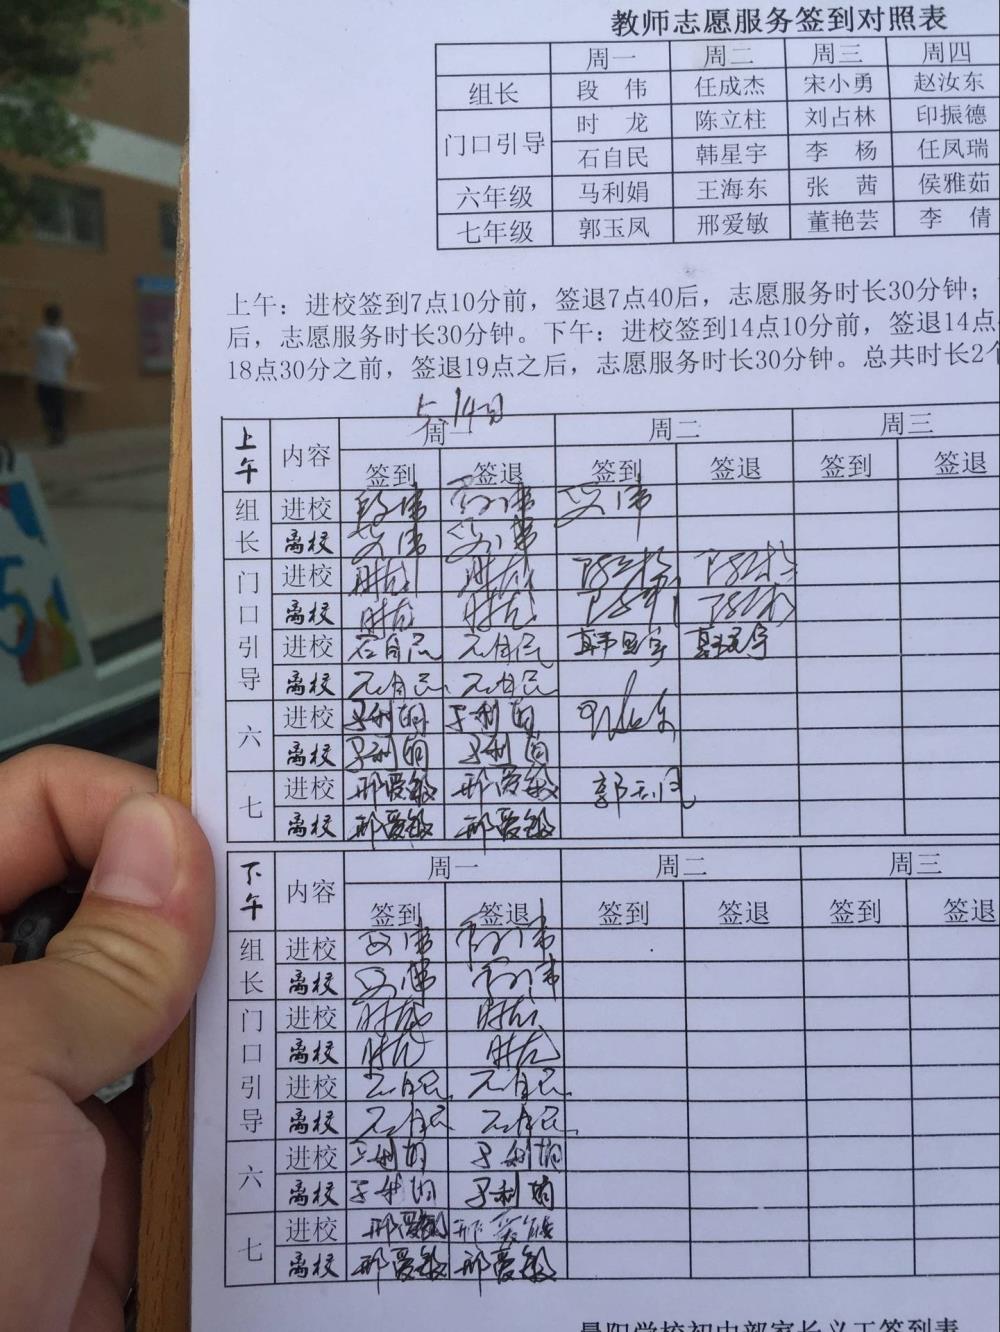 教师志愿服务签到对照表
周一 周二 周三 周四
组长 段 伟 任成杰 宋小勇 赵汝东
门口引导 时 龙 陈立柱 刘占林 印振德
石自民 韩星宇 李 杨 任凤瑞
六年级 马利娟 王海东 张 茜 侯雅茹
七年级 郭玉凤 邢爱敏 董艳芸 李 倩
上午：进校签到7点10分前，签退7点40后，志愿服务时长30分钟；
后，志愿服务时长30分钟。下午：进校签到14点10分前，签退14点
18点30分之前，签退19点之后，志愿服务时长30分钟。总共时长2个
5.14日
上午 内容 周一 周二 周三
签到 签退 签到 签退 签到 签退
组长 进校 段伟 段伟 段伟
离校 段伟 段伟
门口引导 进校 时龙 时龙 陈立柱 陈立柱
离校 时龙 时龙 陈立柱 陈立柱
进校 石自民 石自民 韩星宇 韩星宇
离校 石自民 石自民
六 进校 马利娟 马利娟 王海东
离校 马利娟 马利娟
七 进校 邢爱敏 邢爱敏 郭玉凤
离校 邢爱敏 邢爱敏
下午 内容 周一 周二 周三
签到 签退 签到 签退 签到 签退
组长 进校 段伟 段伟
离校 段伟 段伟
门口引导 进校 时龙 时龙
离校 时龙 时龙
进校 石自民 石自民
离校 石自民 石自民
六 进校 马利娟 马利娟
离校 马利娟 马利娟
七 进校 邢爱敏 邢爱敏
离校 邢爱敏 邢爱敏
学校初中部家长义工签到表